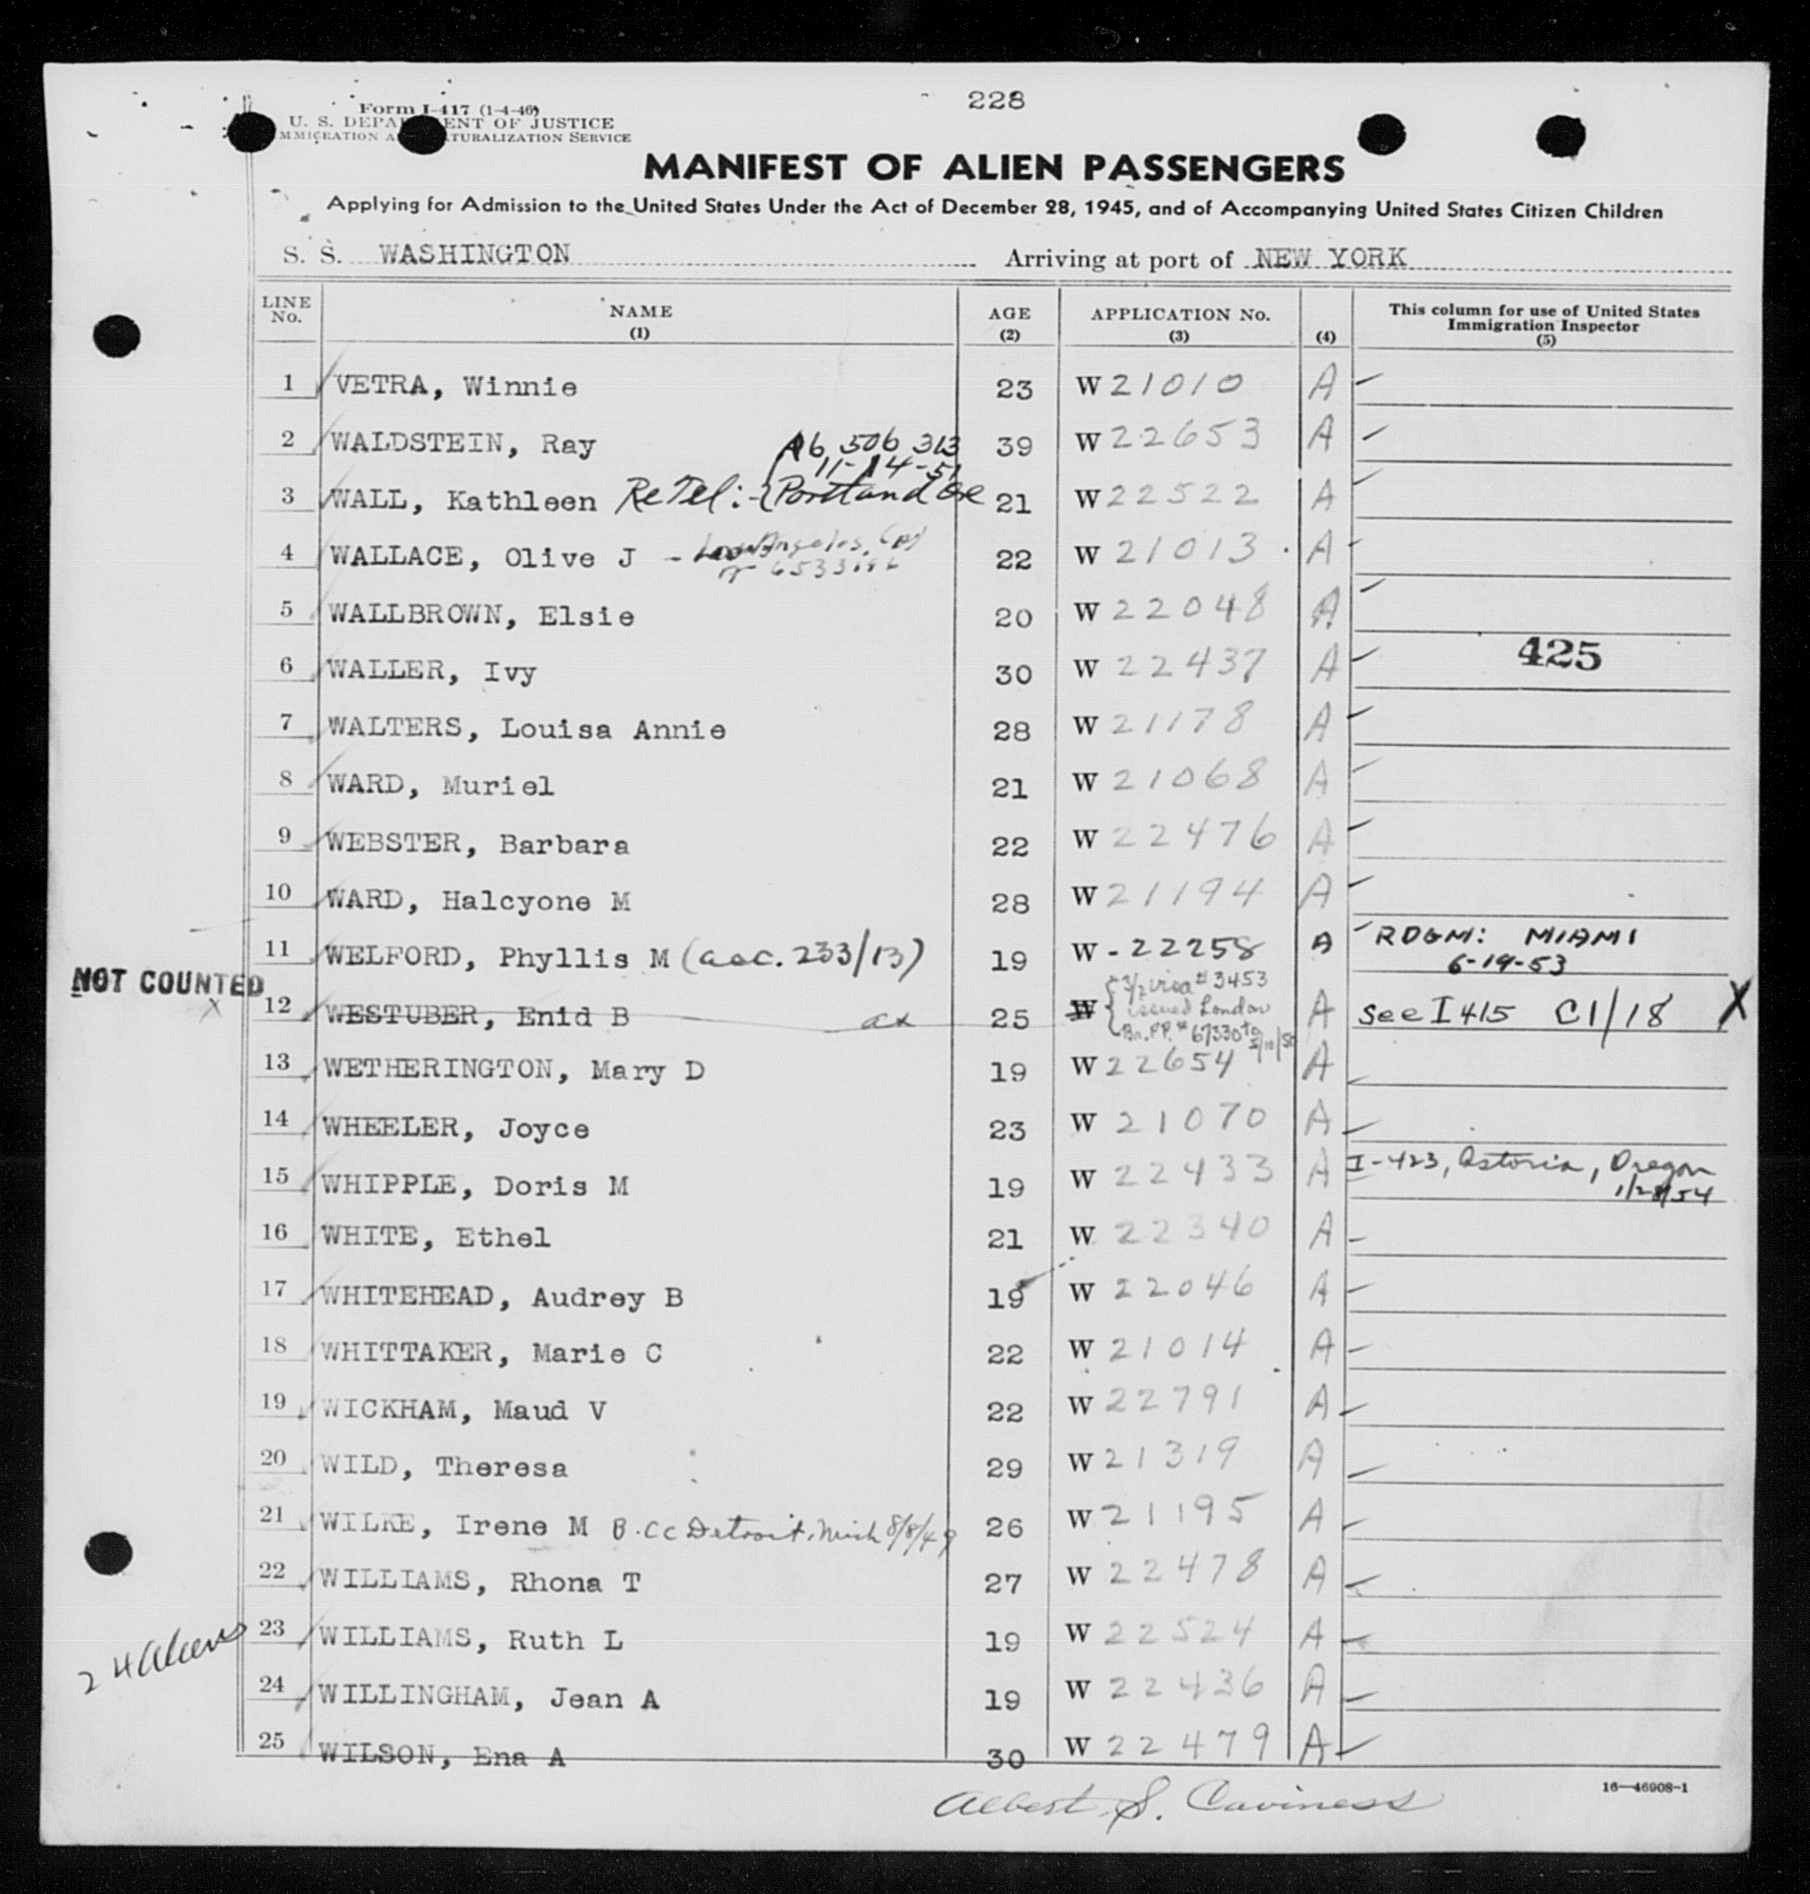 228
Form I-417 (1-4-46)
U. S. DEPARTMENT OF JUSTICE
IMMIGRATION AND NATURALIZATION SERVICE
MANIFEST OF ALIEN PASSENGERS
Applying for Admission to the United States Under the Act of December 28, 1945, and of Accompanying United States Citizen Children
S. S. WASHINGTON Arriving at port of NEW YORK
LINE No. NAME (1) AGE (2) APPLICATION No. (3) (4) This column for use of United States Immigration Inspector (5)
1 VETRA, Winnie 23 W 21010 A
2 WALDSTEIN, Ray 39 W 22653 A
A6 506 313
11-14-51
3 WALL, Kathleen ReTel:- Portland Ore 21 W 22522 A
4 WALLACE, Olive J - Los Angeles 22 W 21013 A
5 WALLBROWN, Elsie 20 W 22048 A
6 WALLER, Ivy 30 W 22437 A
425
7 WALTERS, Louisa Annie 28 W 21178 A
8 WARD, Muriel 21 W 21068 A
9 WEBSTER, Barbara 22 W 22476 A
10 WARD, Halcyone M 28 W 21194 A
11 WELFORD, Phyllis M (acc. 233/13) 19 W - 22258 A RDGM: MIAMI
6-19-53
NOT COUNTED
X 12 WESTUBER, Enid B ax 25 W visa # 3453 issued London A See I 415 C1/18 X
Br. P.P. # 67330
13 WETHERINGTON, Mary D 19 W 22654 A
14 WHEELER, Joyce 23 W 21070 A
15 WHIPPLE, Doris M 19 W 22433 A I-423, Astoria, Oregon
1/28/54
16 WHITE, Ethel 21 W 22340 A
17 WHITEHEAD, Audrey B 19 W 22046 A
18 WHITTAKER, Marie C 22 W 21014 A
19 WICKHAM, Maud V 22 W 22791 A
20 WILD, Theresa 29 W 21319 A
21 WILKE, Irene M B.CC Detroit, Mich 8/8/49 26 W 21195 A
22 WILLIAMS, Rhona T 27 W 22478 A
23 WILLIAMS, Ruth L 19 W 22524 A
24 Aliens
24 WILLINGHAM, Jean A 19 W 22436 A
25 WILSON, Ena A 30 W 22479 A
16—46908-1
Albert S. Caviness